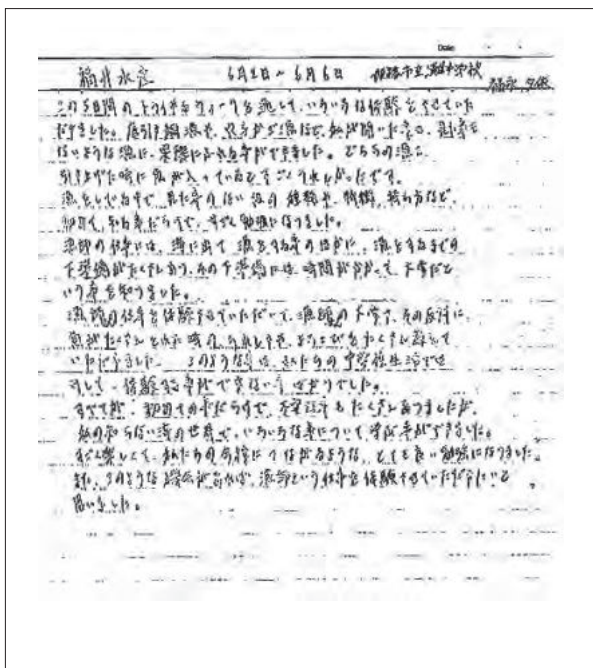 Date
福井水産 6月2日~6月6日 姫路市立灘中学校
この5日間のトライやるウィークを通して、いろいろな体験をさせていた
だきました。底引き網漁や、私が聞いたことも、見た事も
ないような漁に、実際にふれる事ができました。どちらの漁も
引き上げた時に魚が入っているとすごくうれしかったです。
漁をしている中で、見た事のない魚の種類や、特徴、など、
初めて知る事だらけで、すごく勉強になりました。
漁師の仕事には、海に出て漁をする事のほかに、漁をするまでの
下準備がたくさんあり、その下準備には、時間がかかって、大変だと
いう事を知りました。
漁師の仕事を体験させていただいて、漁師の大変さ、その反対に、
魚がたくさんとれた時のうれしさや、よろこびをたくさん教えて
いただきました。このような事は、私たちの中学校生活では
けして、体験する事ができない事ばかりでした。
すべてが、初めての事だらけで、不安な事もたくさんありましたが、
私の知らない海の世界で、いろいろな事について学ぶ事ができました。
すごく楽しくて、私たちの将来につながるような、とても良い勉強になりました。
また、このような機会があれば、漁師という仕事を体験させていただきたいと
思いました。